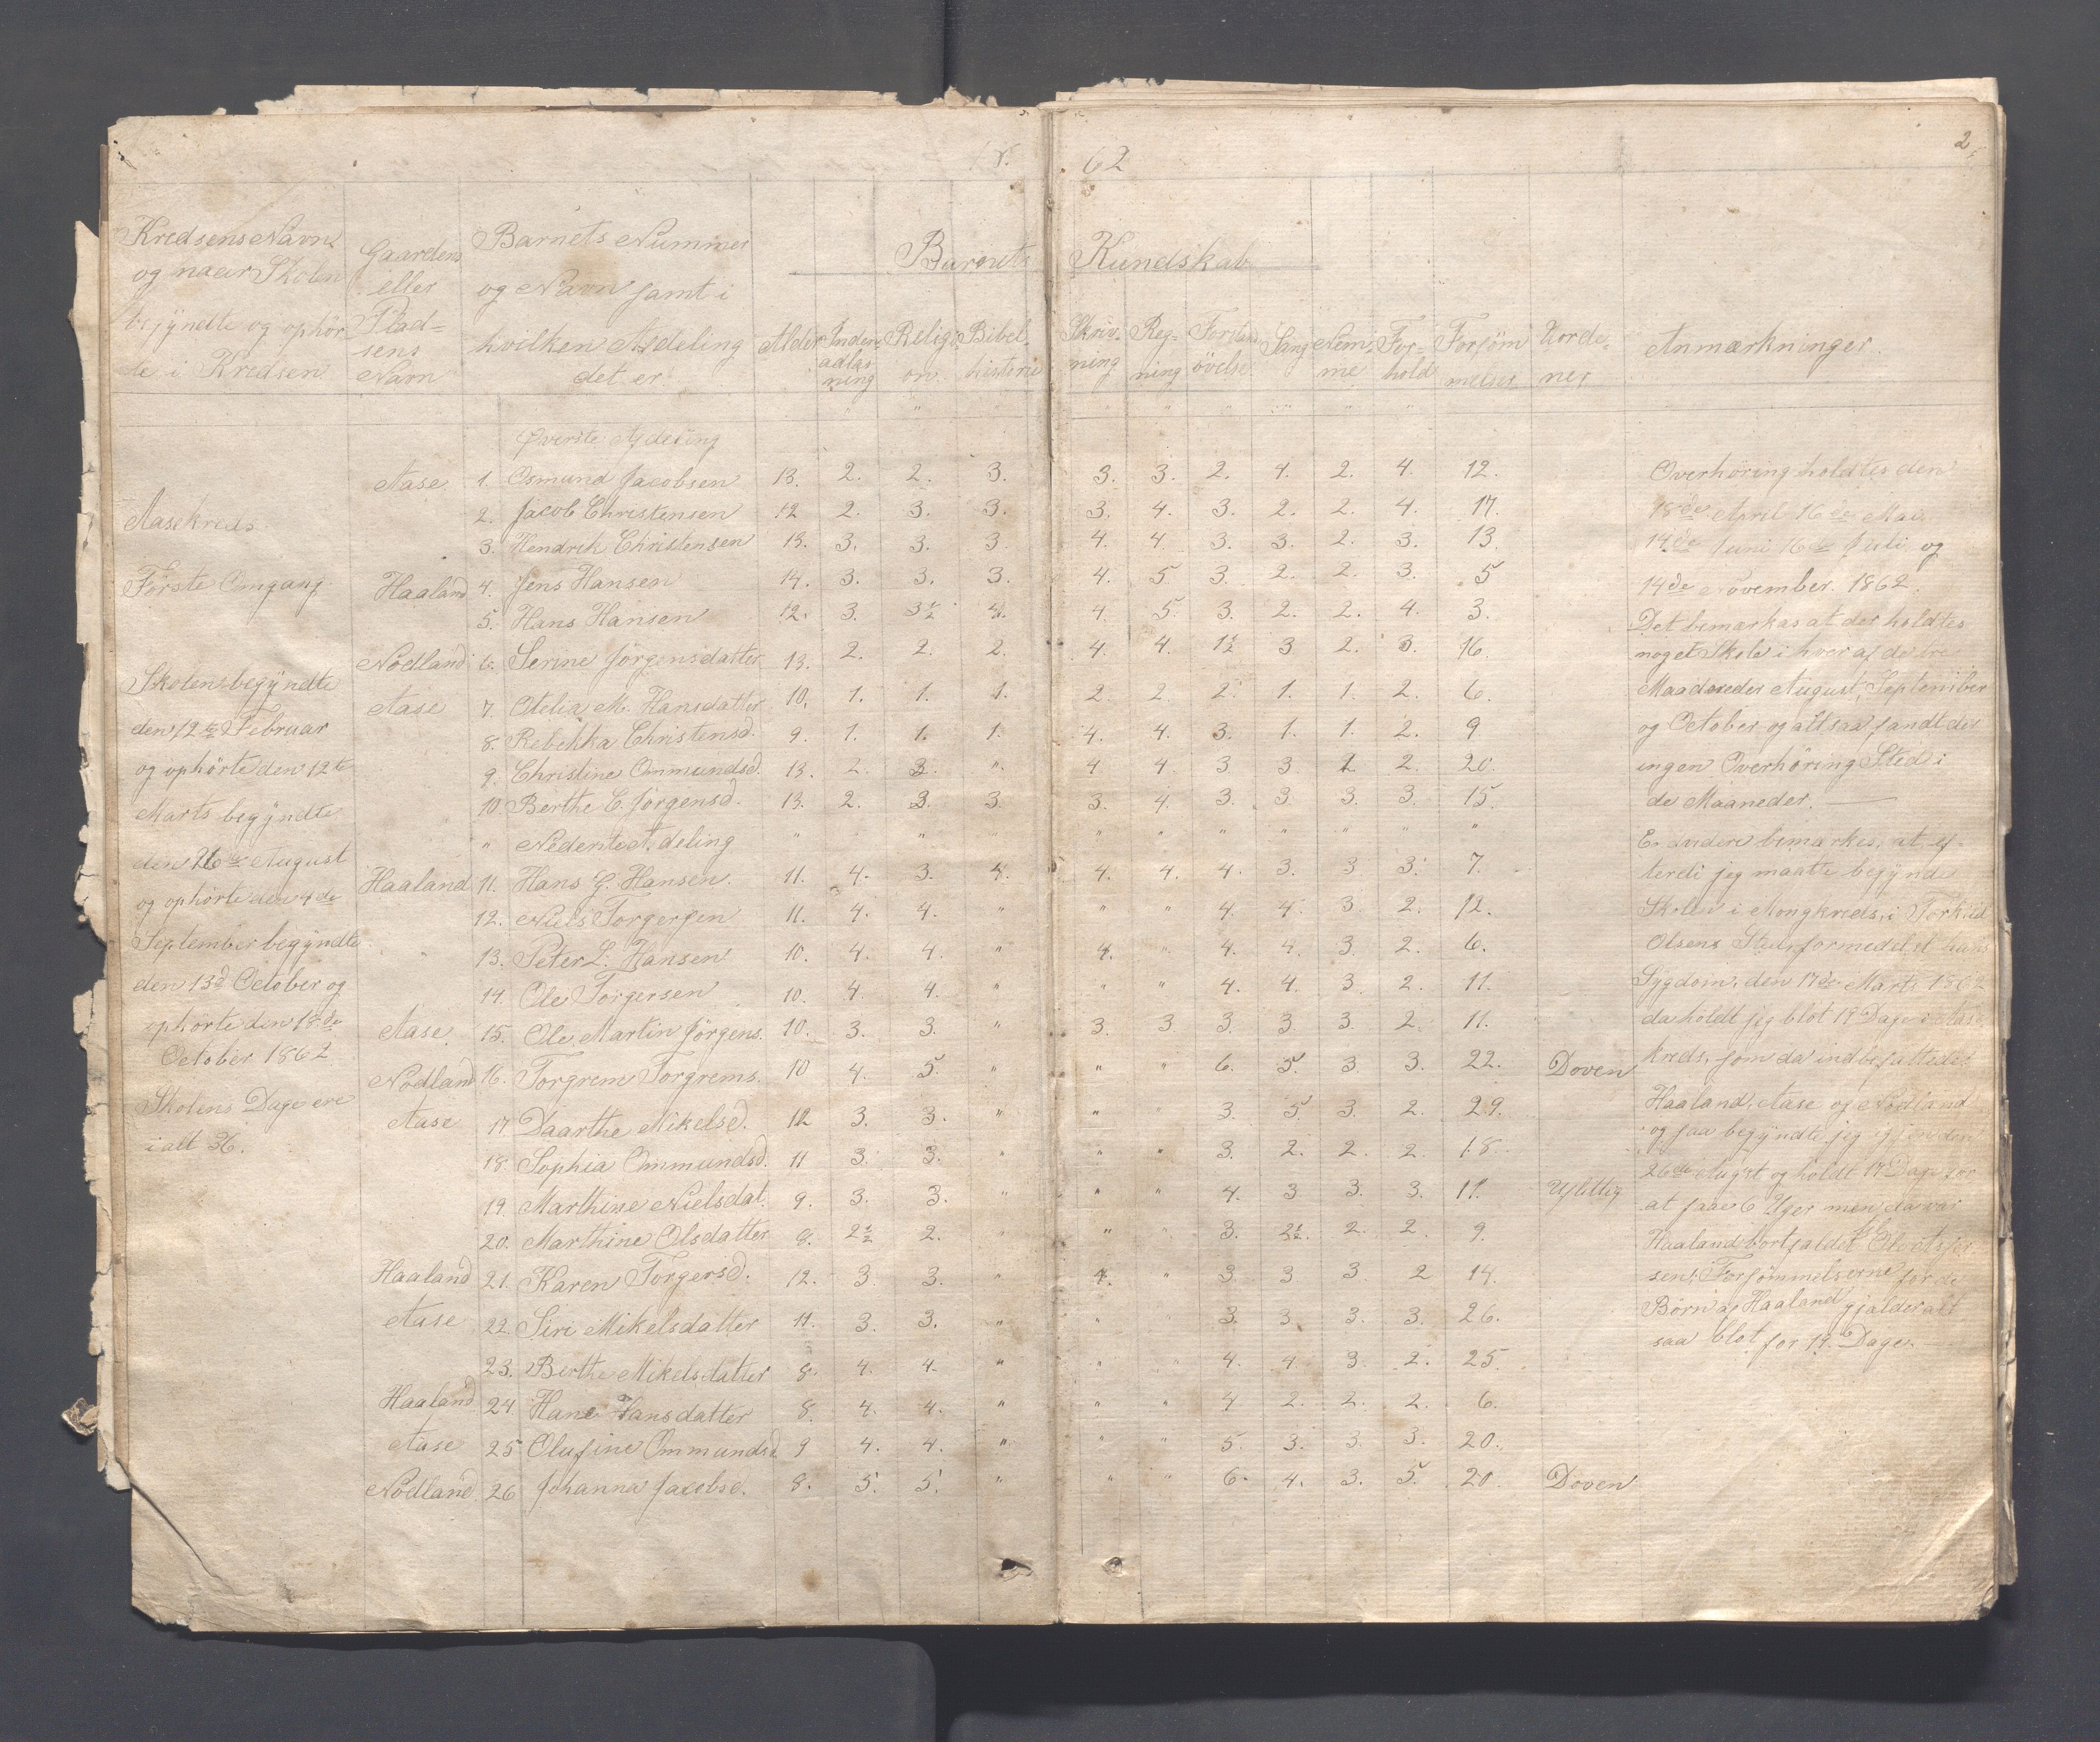 18 62
2
Kredsens Navn og naar Skolen begÿndte og ophörte i Kredsen
Gaardens eller Pladsens Navn
Barnets Nummer og Navn samt i hvilken Afdeling det er
Barnets Kundskab
Alder Indenadlæsning Religion Bibelhistorie Skrivning Regning Forstandsövelse Sang Nemme Forhold Forsömmelser Anmærkninger
Øverste Afdeling
Aase 1. Osmund Jacobsen 13. 2. 2. 3. 3. 3. 2. 4. 2. 4. 12.
2. Jacob Christensen 12 2. 3. 3. 3. 4. 3. 2. 2. 4. 17.
3. Hendrik Christensen 13. 3. 3. 3 4. 4. 3. 3. 2. 3. 13.
Haaland 4. Jens Hansen 14. 3. 3. 3. 4. 5 3. 2. 2. 3. 5
5. Hans Hansen 12. 3. 3½ 4. 4 5. 3. 2. 2. 4. 3.
Nödland 6. Serine Jörgensdatter 13. 2. 2. 2. 4. 4. 1½ 3 2. 3. 16.
Aase 7. Otelia M. Hansdatter 10. 1. 1. 1. 2. 2. 2. 1. 1. 2. 6.
8. Rebekka Christensd. 9. 1. 1. 1. 4. 4. 3. 1. 1. 2. 9
9. Christine Ommundsd. 13. 2. 3. " 4 4. 3 3. 2 2. 20.
10 Berthe C. Jörgensd. 13. 2. 3. 3 3. 4. 3. 3. 3. 3. 15.
" Nederste Afdeling " " " " " " " " "
Haaland 11. Hans G. Hansen. 11. 4. 3. 4. 4. 4. 4. 3. 3 3. 7.
12. Niels Torgersen 11. 4. 4. " " " 4. 4. 3 2. 12.
13. Peter L. Hansen 10. 4. 4. " 4. " 4. 4. 3 2. 6.
14. Ole Torgersen 10. 4. 4. " " " 4. 4. 3 2. 11.
Aase. 15. Ole Martin Jörgens. 10. 3. 3. " 3. 3. 3. 3. 3. 2. 11.
Nödland 16. Torgrem Torgrems. 10 4. 5. " " " 6. 5. 3. 3. 22. Doven
Aase 17 Daarthe Mikelsd. 12 3. 3. " " " 3. 5 3. 2. 29.
18. Sophia Ommundsd. 11 3. 3. " " " 3. 2. 2. 2. 18
19. Marthine Nielsdat. 9. 3. 3. " " " 4. 3 3. 3. 11. Uflittig
20. Marthine Olsdatter 8. 2½ 2. " " " 3. 2½. 2. 2. 9.
Haaland 21. Karen Torgersd. 12. 3. 3. " 4. " 3. 3 3 2 14.
Aase 22. Siri Mikelsdatter 11. 3. 3. " " " 3. 3 3. 3. 26.
23. Berthe Mikelsdatter 8. 4. 4. " " " 4. 4. 3. 2. 25.
Haaland 24. Hane Hansdatter 8. 4. 4. " " " 4 2. 2. 2. 6.
Aase 25 Olufine Ommundsd. 9 4. 4. " " " 5. 3. 3. 3. 20.
Nödland 26 Johanna Jacobsd. 8. 5. 5. " " " 6. 4. 3. 5. 20. Doven
Aasekreds.
Förste Omgang.
Skolen begÿndte
den 12te Februar
og ophörte den 12te
Marts begÿndte
den 26de August
og ophörte den 4de
September begÿndte
den 13d October og
ophörte den 18de
October 1862
Skolens Dage ere
i alt 36.
Overhöring holdtes den
18de April 16de Mai
14de Juni 16de Juli og
14de November 1862.
Det bemærkes at der holdtes
noget Skole i hver af de tre
Maaneder August, September
og October og altsaa fandt der
ingen Overhöring Sted i
de Maaneder.
Endvidere bemærkes, at ef-
terdi jeg maatte begÿnde
Skolen i Mongkreds, i Torkild
Olsens Sted, formedelst hans
Sygdom, den 17de Marts 1862
da holdt jeg blot 19 Dage i Aase
kreds, som da indbefattedes
Haaland, Aase og Nödland
og saa begÿndte jeg igjen den
26de August og holdt 17 Dage for
at faae 6 Uger men da var
Haaland bortfaldet
Forsömmelserne for de
Börn af Haaland gjælder alt
saa blot for 19 Dage.